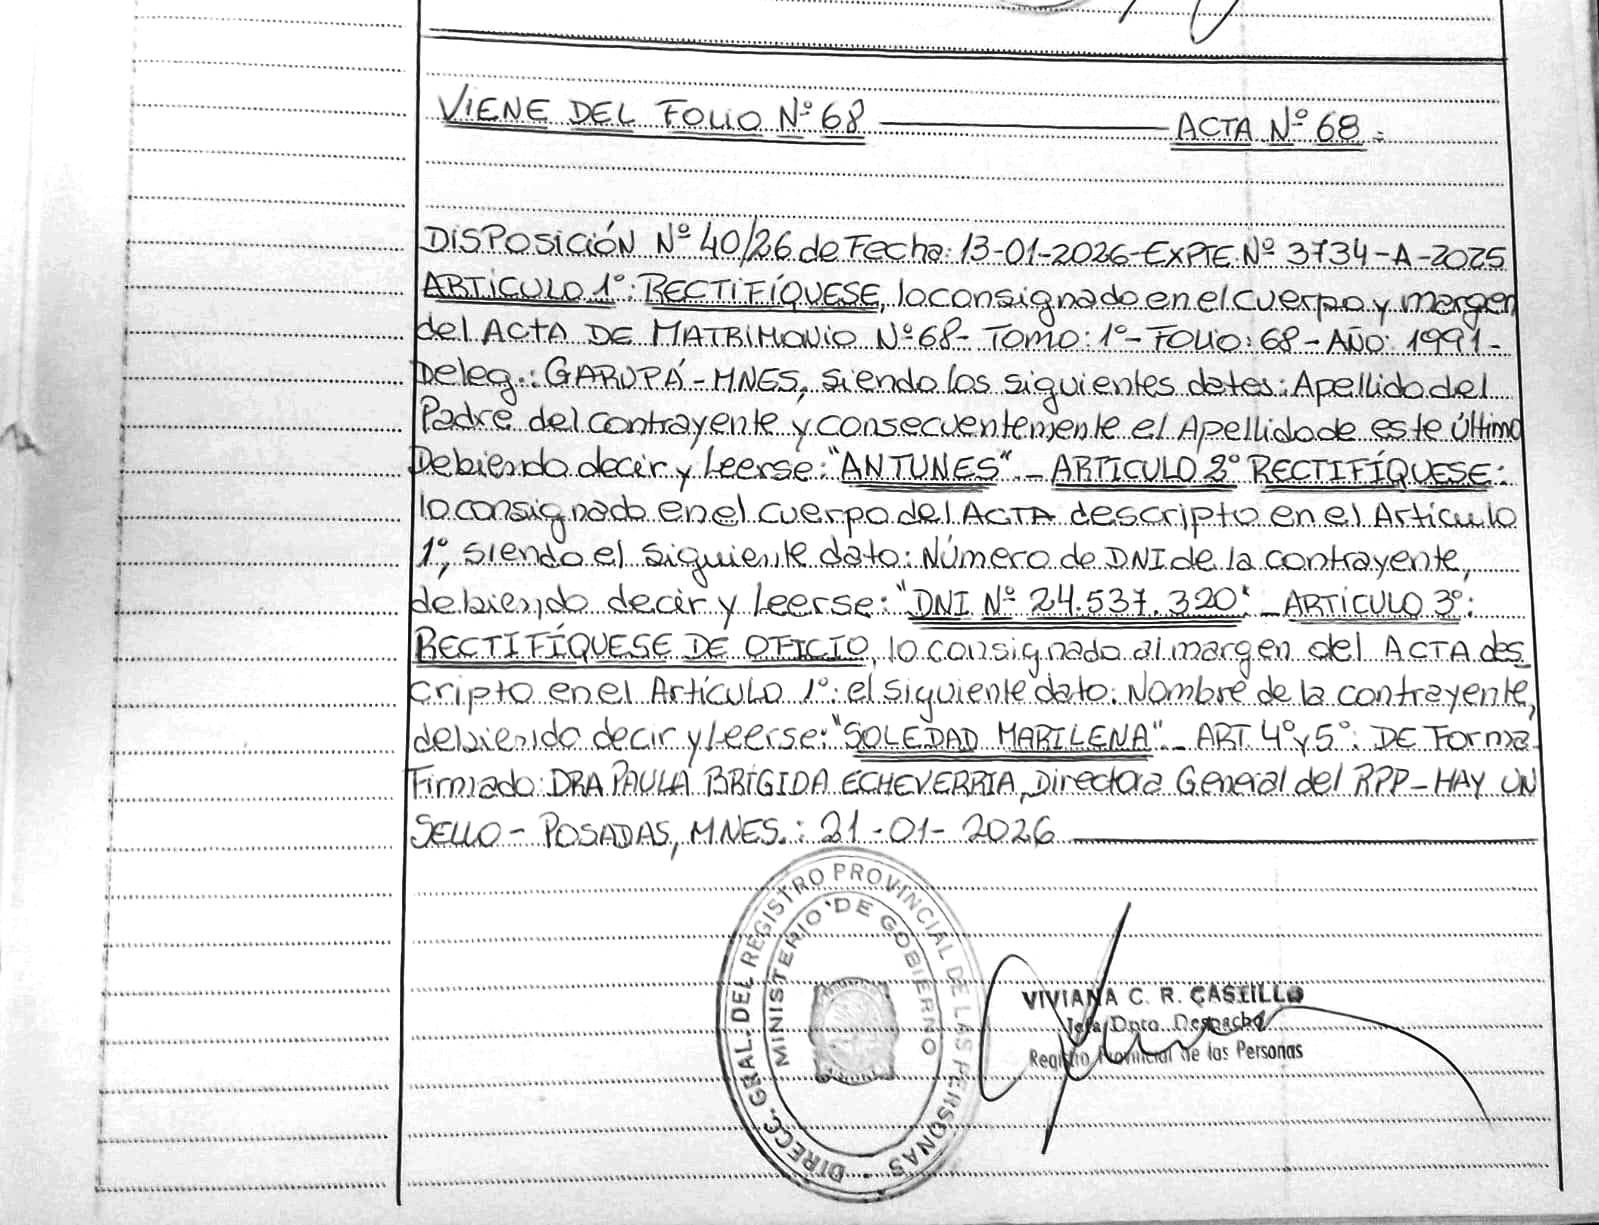 VIENE DEL FOLIO Nº 68 ACTA Nº 68 =
DISPOSICIÓN Nº 40/26 de Fecha: 13-01-2026-EXPTE Nº 3734-A-2025
ARTICULO 1º: RECTIFÍQUESE, lo consignado en el cuerpo y margen
del ACTA DE MATRIMONIO Nº 68- TOMO: 1º- FOLIO: 68 - AÑO: 1991-
Deleg.: GARUPÁ - MNES, siendo los siguientes datos: Apellido del
Padre del contrayente y consecuentemente el Apellido de este último
Debiendo decir y Leerse: "ANTUNES".- ARTICULO 2º RECTIFÍQUESE:
lo consignado en el cuerpo del ACTA descripto en el Artículo
1º, siendo el siguiente dato: Número de DNI de la contrayente,
debiendo decir y Leerse: "DNI Nº 24.537.320" - ARTICULO 3º:
RECTIFÍQUESE DE OFICIO, lo consignado al margen del ACTA des
cripto en el Artículo 1º: el siguiente dato: Nombre de la contrayente,
debiendo decir y Leerse: "SOLEDAD MARILENA".- ART. 4º y 5º: DE Forma
Firmado: DRA PAULA BRIGIDA ECHEVERRIA, Directora General del RPP - HAY UN
SELLO - POSADAS, MNES.: 21-01-2026
DIRECC. GRAL. DEL REGISTRO PROVINCIAL DE LAS PERSONAS
MINISTERIO DE GOBIERNO
VIVIANA C. R. CASTILLO
Jefa Dpto. Despacho
Registro Provincial de las Personas